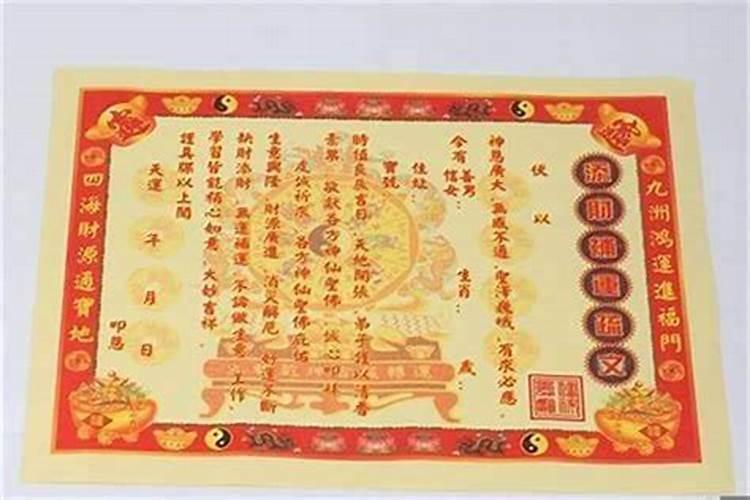 九洲鴻運進福門
添財補運疏文
伏以
神恩廣大 無感不通 聖澤巍峨 有求必應
今有善男
信女 生肖 歲
住址
寶號
時值良辰吉日 天地開張 弟子謹以清香
素果 敬獻各方神仙聖佛 誠心叩拜
虔誠祈求 各方神仙聖佛庇佑
生意興隆 財源廣進 消災解厄 好運不斷
缺財添財 無運補運 不論做生意 工作
學習皆能稱心如意 大妙吉祥
謹具牒以上聞
天運 年 月 日
叩恩
四海財源通寶地